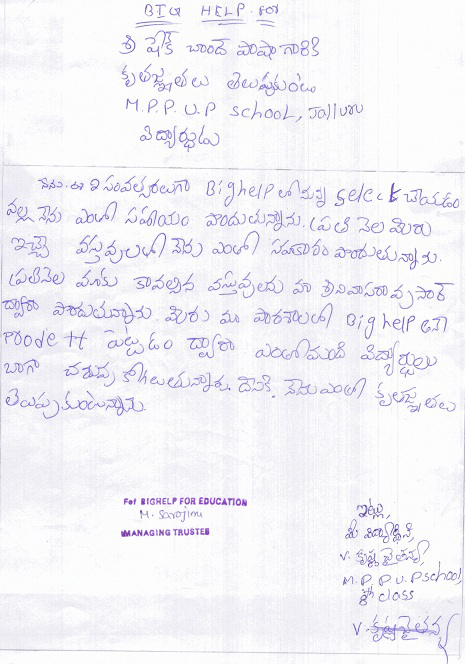 BIG HELP. For
శ్రీ షేక్ చాంద్ పాషా గారికి
కృతజ్ఞతలు తెలుపుకుంటు
M.P.P.U.P school, Jalluru
విద్యార్థుడు
నేను. ఈ 2 సంవత్సరలుగా Bighelp లో నన్ను select చేయడం
వల్ల నేను ఎంతో సహాయం పొందుతున్నాను. ప్రతి నెల మీరు
ఇచ్చె వస్తువులతో నేను ఎంతో సహకారం పొందుతున్నాను.
ప్రతినెల మాకు కావలసిన వస్తువులను మా శ్రీనివాసరావు సార్
ద్వారా పొందుతున్నాను. మీరు మా పాఠశాలలో Bighelp అనే
పెట్టడం ద్వారా ఎంతోమంది విద్యార్థులు
బాగా చదువు కోగలుతున్నారు. దీనికి నేను ఎంతో కృతజ్ఞతలు
తెలుపుకుంటున్నాను.
For BIGHELP FOR EDUCATION
M. Sarojini
MANAGING TRUSTEE
ఇట్లు,
మీ విద్యార్థిని,
V. కృష్ణ చైతన్య,
M.P.P.U.P school,
class
V. కృష్ణ చైతన్య